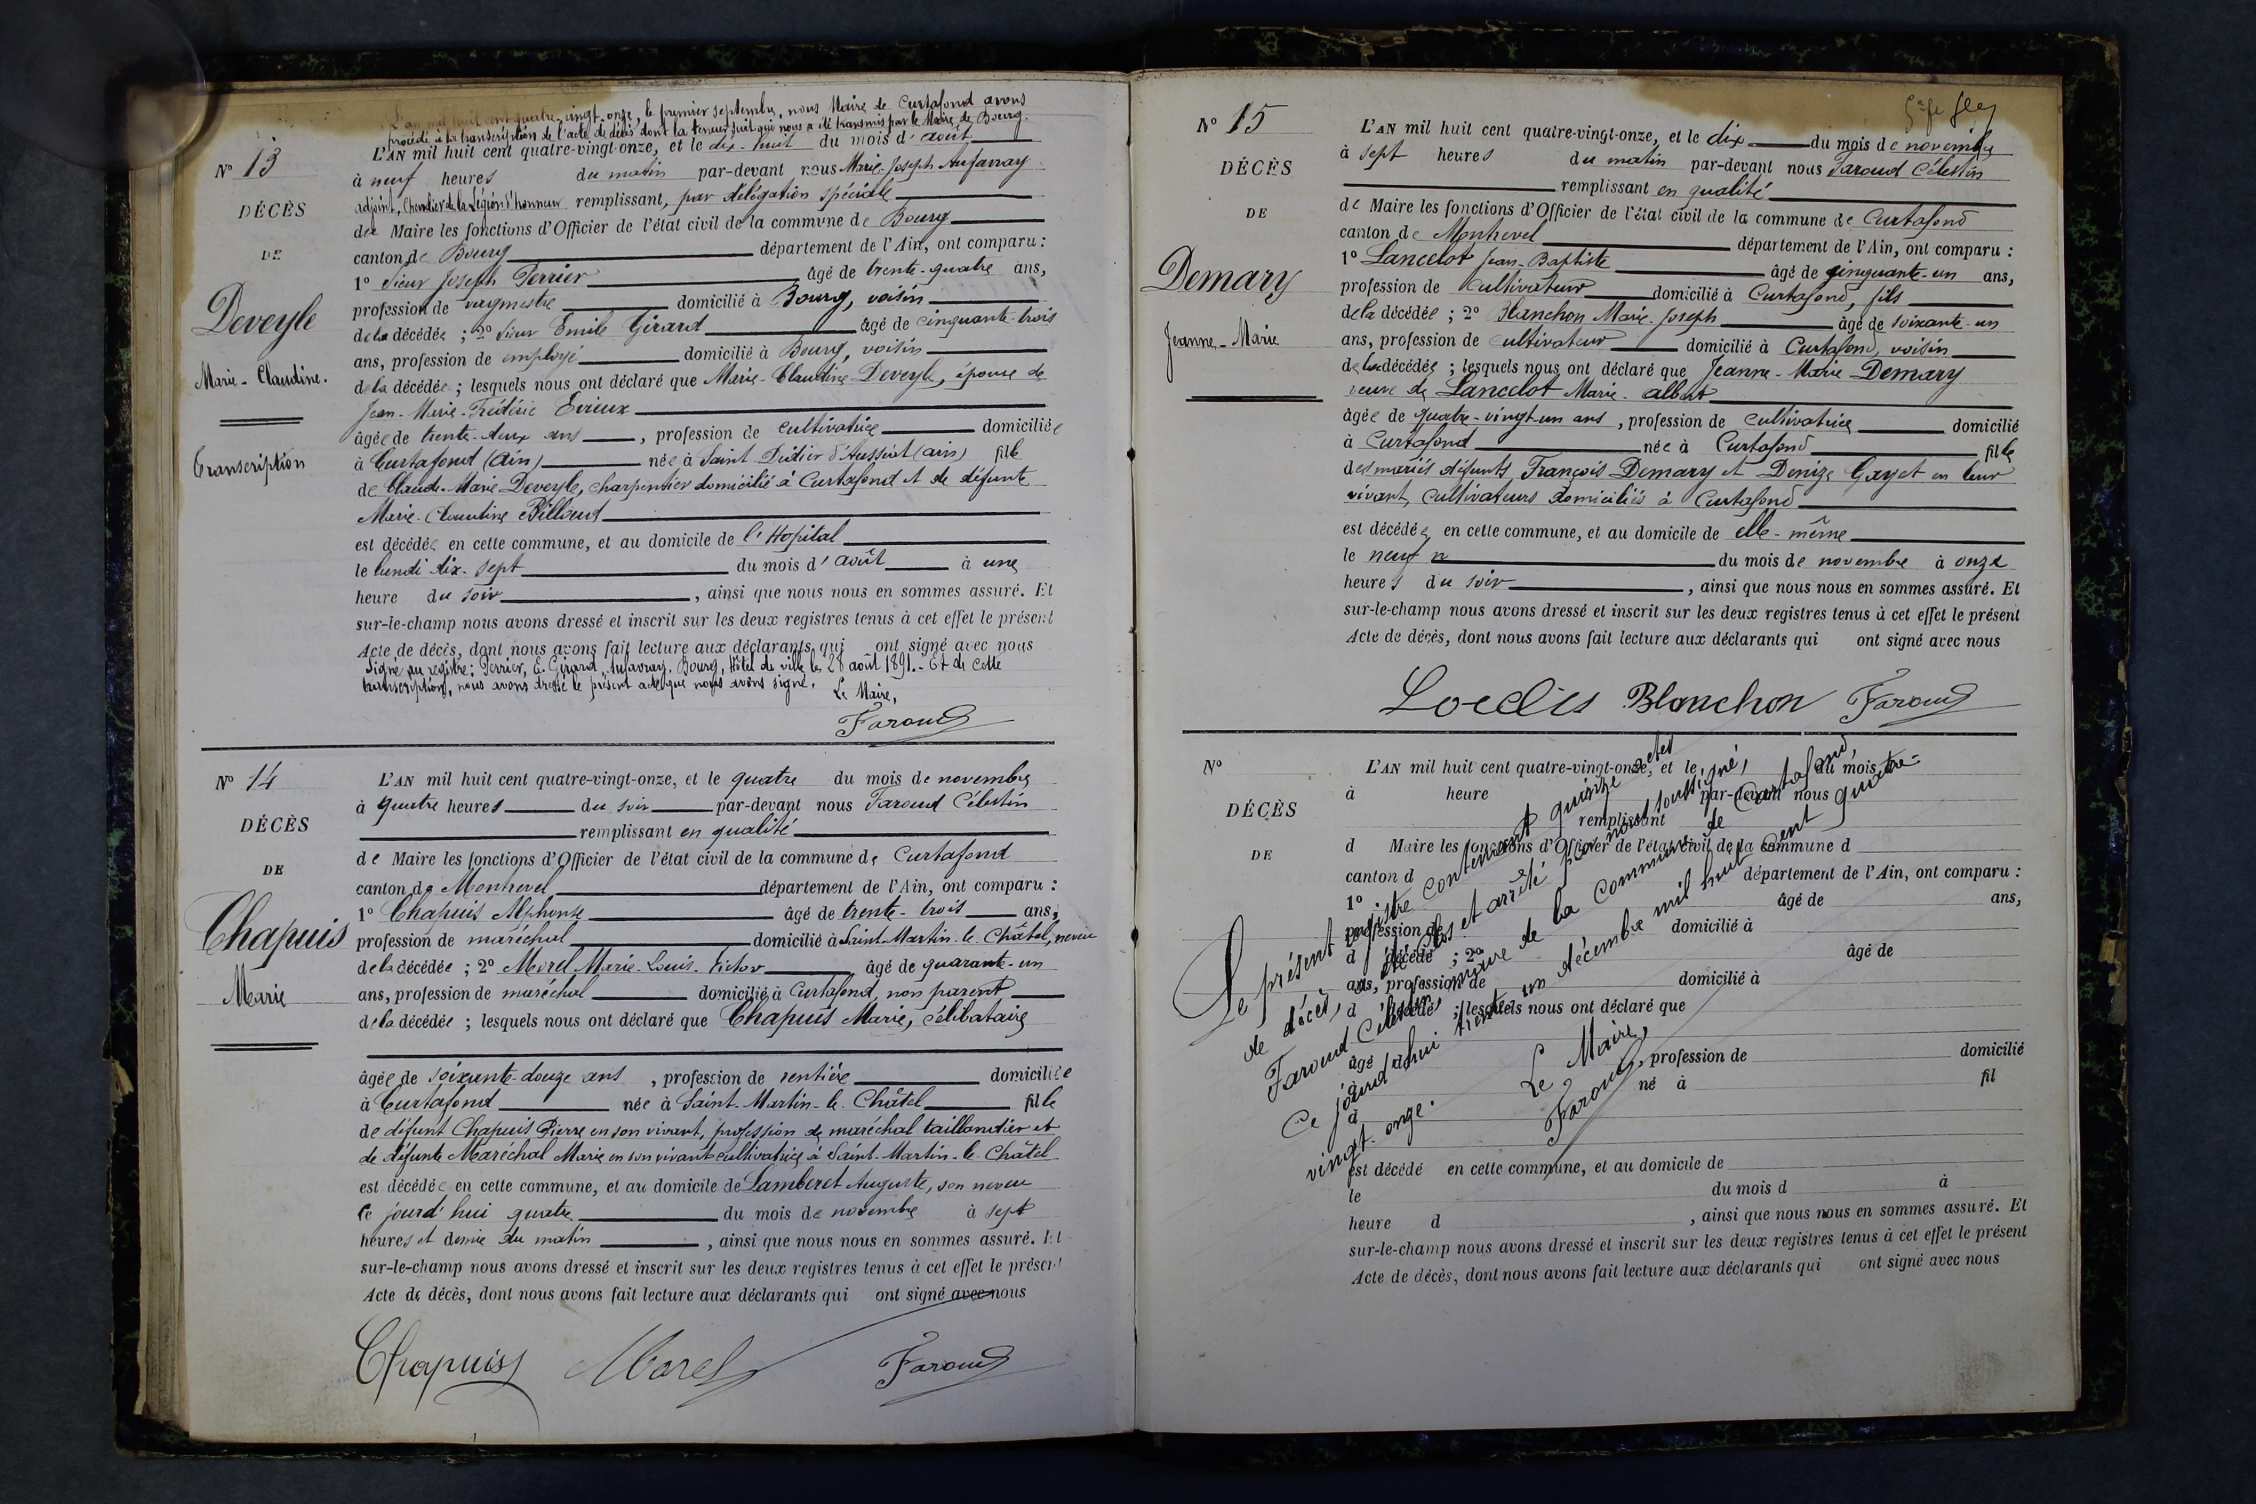 L'an mil huit cent quatre-vingt-onze, le premier septembre, nous Maire de Curtafond avons
procédé à la transcription de l'acte de décès dont la teneur suit qui nous a été transmis par le Maire de Bourg.
N° 13
DÉCÈS
DE
Deveyle
Marie-Claudine.
Transcription
L'AN mil huit cent quatre-vingt-onze, et le dix-huit du mois d'août
à neuf heures du matin par-devant nous Marie-Joseph Aufavray
adjoint, Chevalier de la Légion d'honneur remplissant, par délégation spéciale
du Maire les fonctions d'Officier de l'état civil de la commune de Bourg
canton de Bourg département de l'Ain, ont comparu :
1° Sieur Joseph Perrier âgé de trente-quatre ans,
profession de vaguemestre domicilié à Bourg, voisin
de la décédée ; 2° Sieur Emile Girard âgé de cinquante-trois
ans, profession de employé domicilié à Bourg, voisin
de la décédée ; lesquels nous ont déclaré que Marie-Claudine Deveyle, épouse de
Jean-Marie-Frédéric Evieux
âgée de trente-deux ans , profession de cultivatrice domiciliée
à Curtafond (Ain) née à Saint-Didier d'Aussiat (ain) fille
de Claude-Marie Deveyle, charpentier domicilié à Curtafond et de défunte
Marie-Claudine Billoud
est décédée en cette commune, et au domicile de l'Hopital
le lundi dix-sept du mois d'août à une
heure du soir , ainsi que nous nous en sommes assuré. Et
sur-le-champ nous avons dressé et inscrit sur les deux registres tenus à cet effet le présent
Acte de décès, dont nous avons fait lecture aux déclarants qui ont signé avec nous
Signé au registre : Perrier, E. Girard, Aufavray. Bourg, Hôtel de ville le 28 août 1891. - Et de cette
transcription, nous avons dressé le présent acte que nous avons signé.
Le Maire,
Faroud
N° 14
DÉCÈS
DE
Chapuis
Marie
L'AN mil huit cent quatre-vingt-onze, et le quatre du mois de novembre
à quatre heures du soir par-devant nous Faroud Célestin
remplissant en qualité
de Maire les fonctions d'Officier de l'état civil de la commune de Curtafond
canton de Montrevel département de l'Ain, ont comparu :
1° Chapuis Alphonse âgé de trente-trois ans,
profession de maréchal domicilié à Saint-Martin-le-Châtel, neveu
de la décédée ; 2° Morel Marie-Louis-Victor âgé de quarante-un
ans, profession de maréchal domicilié à Curtafond, non parent
de la décédée ; lesquels nous ont déclaré que Chapuis Marie, célibataire
âgée de soixante-douze ans , profession de rentière domiciliée
à Curtafond née à Saint-Martin-le-Châtel fille
de défunt Chapuis Pierre en son vivant, profession de maréchal taillandier et
de défunte Maréchal Marie en son vivant cultivatrice à Saint-Martin-le-Châtel
est décédée en cette commune, et au domicile de Lamberet Auguste, son neveu
ce jourd'hui quatre du mois de novembre à sept
heures et demie du matin , ainsi que nous nous en sommes assuré. Et
sur-le-champ nous avons dressé et inscrit sur les deux registres tenus à cet effet le présent
Acte de décès, dont nous avons fait lecture aux déclarants qui ont signé avec nous
Chapuis Morel Faroud
N° 15
DÉCÈS
DE
Demary
Jeanne-Marie
L'AN mil huit cent quatre-vingt-onze, et le dix du mois de novembre
à sept heures du matin par-devant nous Faroud Célestin
remplissant en qualité
de Maire les fonctions d'Officier de l'état civil de la commune de Curtafond
canton de Montrevel département de l'Ain, ont comparu :
1° Lancelot Jean-Baptiste âgé de cinquante-un ans,
profession de cultivateur domicilié à Curtafond, fils
de la décédée ; 2° Blanchon Marie-Joseph âgé de soixante-un
ans, profession de cultivateur domicilié à Curtafond, voisin
de la décédée ; lesquels nous ont déclaré que Jeanne-Marie Demary
veuve de Lancelot Marie-albert
âgée de quatre-vingt-un ans , profession de cultivatrice domicilié
à Curtafond née à Curtafond fille
des mariés défunts François Demary et Denize Gayet en leur
vivant, cultivateurs domiciliés à Curtafond
est décédée en cette commune, et au domicile de elle-même
le neuf du mois de novembre à onze
heures du soir , ainsi que nous nous en sommes assuré. Et
sur-le-champ nous avons dressé et inscrit sur les deux registres tenus à cet effet le présent
Acte de décès, dont nous avons fait lecture aux déclarants qui ont signé avec nous
Blanchon Faroud
N°
DÉCÈS
DE
L'AN mil huit cent quatre-vingt-onze, et le du mois
à heure par-devant nous
remplissant
d Maire les fonctions d'Officier de l'état civil de la commune d
canton d département de l'Ain, ont comparu :
1° âgé de ans,
profession de domicilié à
d décédé ; 2° âgé de
ans, profession de domicilié à
d décédé ; lesquels nous ont déclaré que
âgé , profession de domicilié
à né à fil
d
est décédé en cette commune, et au domicile de
le du mois d à
heure d , ainsi que nous nous en sommes assuré. Et
sur-le-champ nous avons dressé et inscrit sur les deux registres tenus à cet effet le présent
Acte de décès, dont nous avons fait lecture aux déclarants qui ont signé avec nous
Le présent registre contenant quinze actes
de décès, a été clos et arrêté par nous soussigné,
Faroud Célestin, maire de la commune de Curtafond,
Ce jourd'hui trente-un décembre mil huit cent quatre-
vingt-onze.
Le Maire,
Faroud